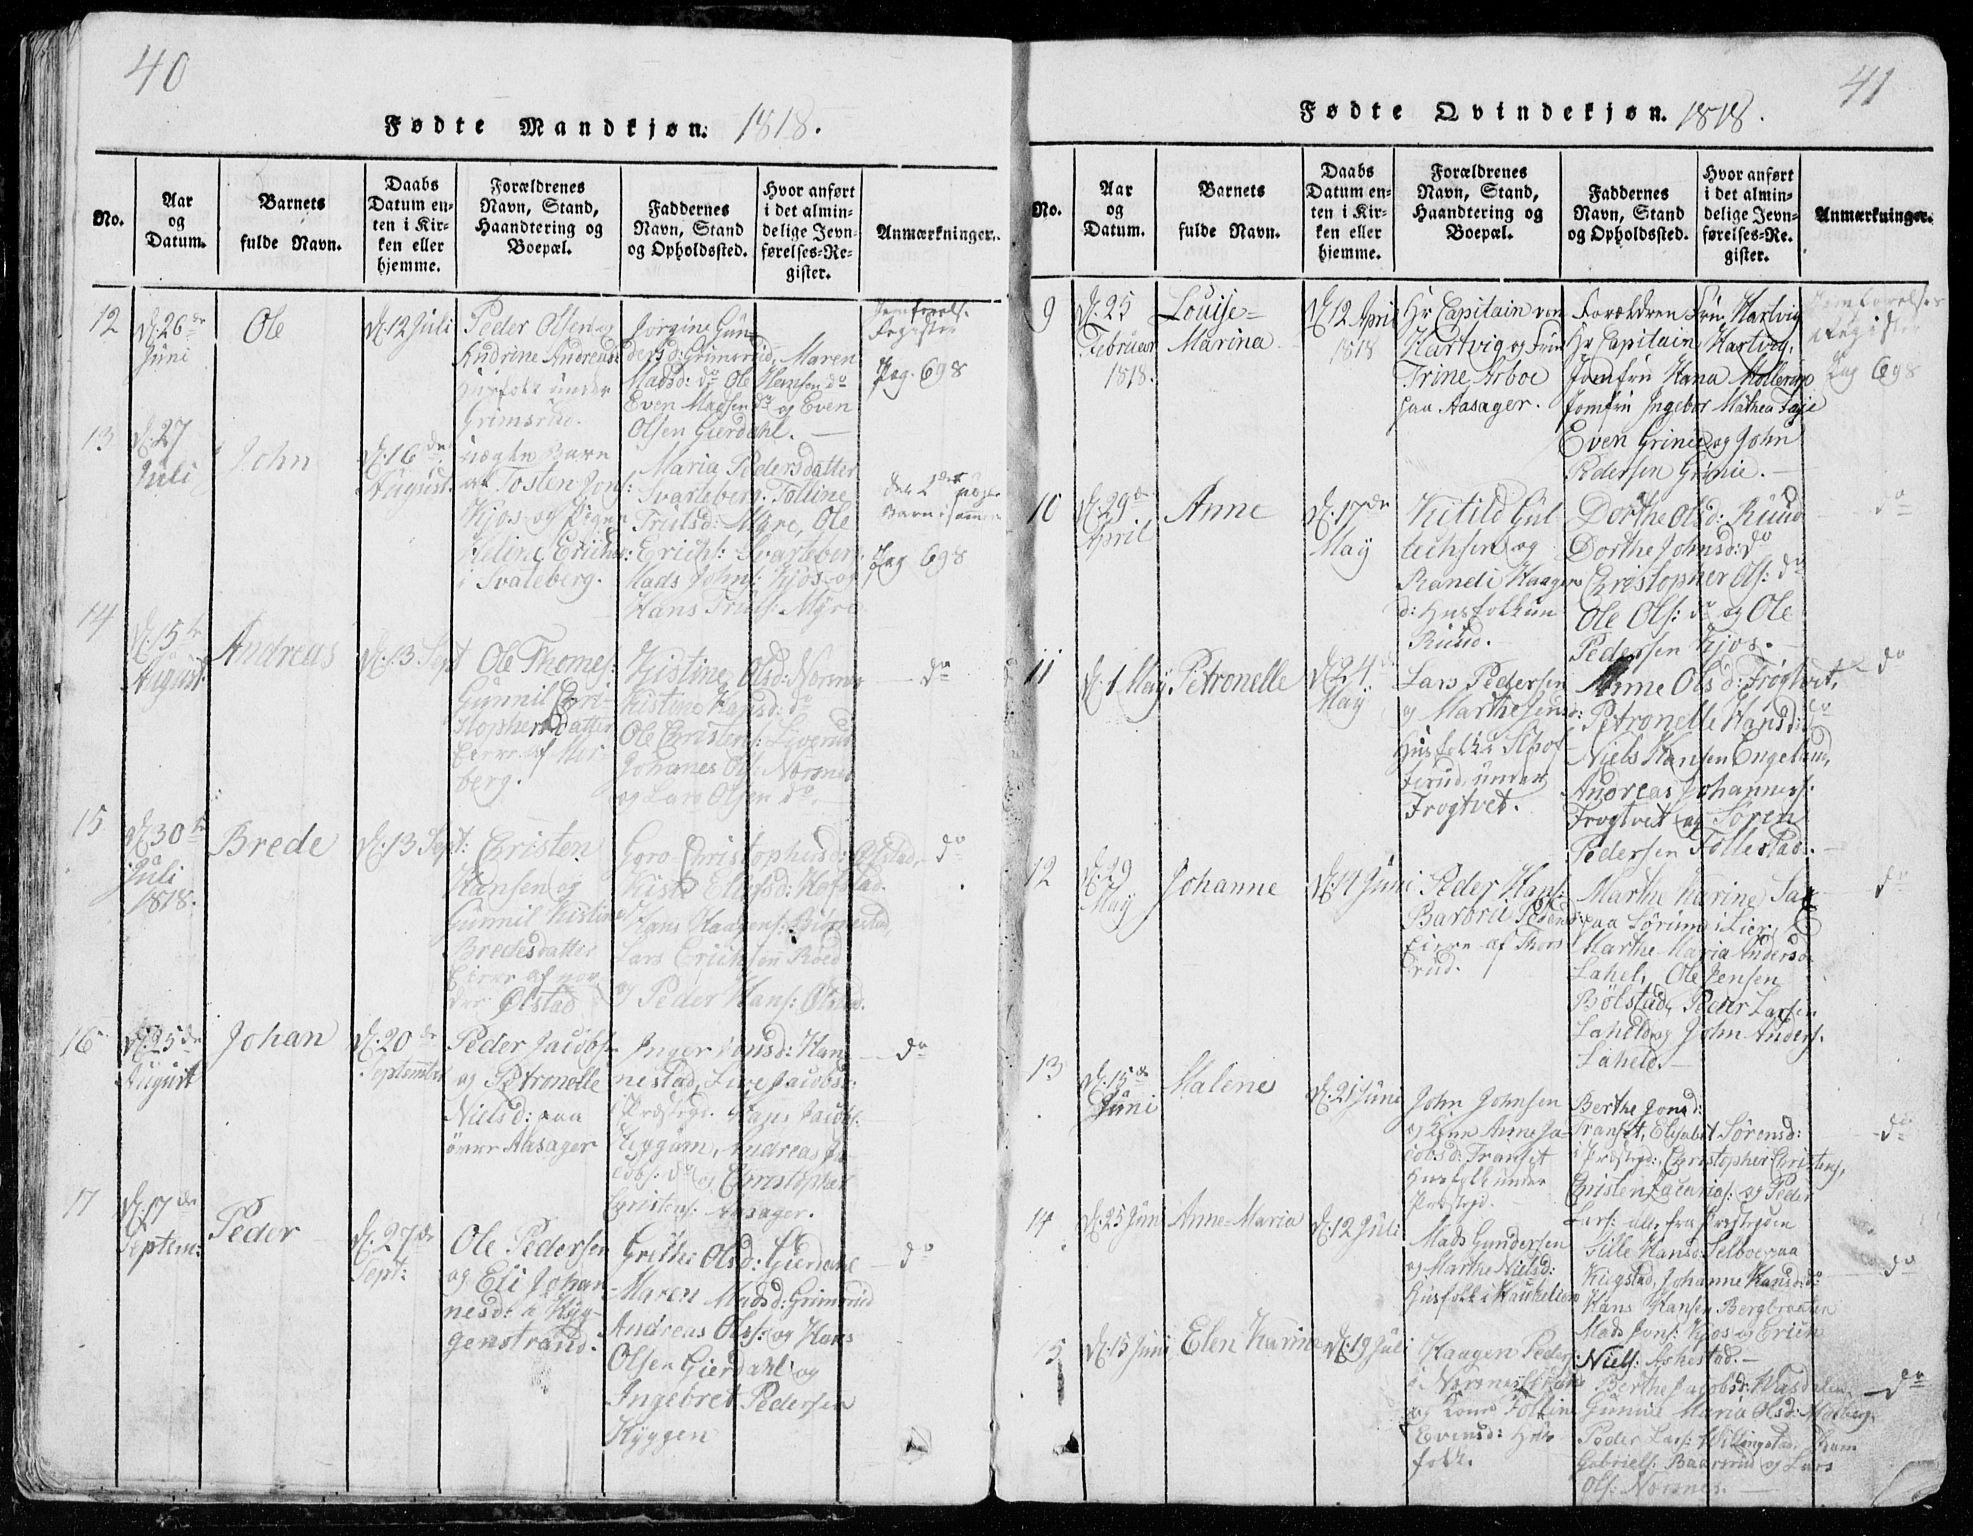 40
Fødte Mandkjøn. 1818.
No.
Aar
og
Datum.
Barnets
fulde Navn.
Daabs
Datum en-
ten i Kir-
ken eller
hjemme.
Forældrenes
Navn, Stand,
Haandtering og
Boepæl.
Faddernes
Navn, Stand
og Opholdssted.
Hvor anført
i det almin-
delige Jevn-
førelses-Re-
gister.
Anmærkninger.
12
d. 26de
Juni
Ole
d. 12 Juli
Peder Olsen og
Andrine Andreasd
Husfolk under
Grimsrud.
Jorgine Gun-
dersd: Grimsrud, Maren
Madsd: do Ole Hansen do
Even Madsen do og Even
Olsen Gierdahl.
Register
Pag. 698
13
d. 27
Juli
John
d. 16de
August.
uægte Barn
af Tosten Jons:
Kjos og Pigen
Heline Erichsd:
i Svarteberg.
Maria Pedersdatter
Svarteberg, Tolline
Trulsd: Myre, Ole
Erichs: Svarteberg
Mads Johns: Kjos og
Hans Truls: Myre
Pag 698
14
d. 15de
August.
Andreas
d. 13 Sept
Ole Thomes:
Gunnil Chri-
stophersdatter
Eiere af Mer-
berg.
Kistine Olsd: Norsnes
Kistine Hansd: do
Ole Christens: Liverud
Johanes Ols: Norsnes
og Lars Olsen do.
do
15
d. 30te
Juli
1818.
Brede
d. 13 Sept:
Christen
Hansen og
Gunnil Kistine
Bredesdatter
Eiere af nor-
dre Ølstad
Goro Christophersd: Ølstad,
Kisti Elefsd: Hofstad.
Hans Haagens: Biørnestad,
Lars Erichsen Roed
og Peder Hans: Ølstad.
do
16
d. 25de
August
Johan
d. 20de
September
Peder Jacobs:
og Petronelle
Nielsd: paa
øvre Aasager
Inger Jonsd: Han-
nestad, Live Jacobsd:
i Præstegd. Hans Jacobs:
Heggum, Andreas Ja-
cobs: do og Christopher
Christens: Aasager.
do
17
d. 17de
Septem:
Peder
d. 27de
Sept:
Ole Pedersen
og Eli Johan-
nesd: a Kyg-
genstrand.
Grethe Olsd: Gierdahl
Maren Madsd: Grimsrud
Andreas Ols: og Hans
Olsen Gierdahl og
Ingebret Pedersen
Kyggen
do
41
Fødte Qvindekjøn. 1818.
No.
Aar
og
Datum.
Barnets
fulde Navn.
Daabs
Datum en-
ten i Kir-
ken eller
hjemme.
Forældrenes
Navn, Stand,
Haandtering og
Boepæl.
Faddernes
Navn, Stand
og Opholdssted.
Hvor anført
i det almin-
delige Jevn-
førelses-Re-
gister.
Anmærkninger.
9
d. 25
Februar
1818.
Louise-
Marina
d. 12 April
1818
Hr Capitain von
Hartvig og Frue
Trine Arboe
paa Aasager.
Forældren Fru Hartvig
Hr Capitain Hartvig,
Jomfru Hana Møllerop
Jomfru Ingebor Mathea
Even Grinie og John
Pedersen Grinie.
Register
Pag 698
10
d. 29de
April
Anne
d. 17de
May
Kitild Gul-
lechsen og
Randi Haagens
d: Husfolk un:
Ruud.
Dorthe Olsd: Ruud
Dorthe Johnsd: do
Christopher Ols: do
Ole Ols: do og Ole
Pedersen Kjos.
do
11
d. 1 May
Petronelle
d. 24de
May
Lars Pedersen
og Marthe Jensd:
Husfolk i
under
Frogtvet.
Anne Olsd: Frøgtvet,
Petronelle Hansd: do
Niels Hansen Engelund,
Andreas Johannes:
Frogtvet og Søren
Pedersen Follestad.
do
12
d. 29
May
Johanne
d. 14 Juni
Peder Hans:
Barbra Pedersd:
Eiere af Thors-
rud.
Marthe Karine
paa Sørum i Lier,
Marthe Maria Andersd:
Lahel, Ole Jensen
Bölstad, Peder Larsen
Laheld og John Anders:
Laheld.
do
13
d. 15de
Juni
Malene
d. 21 Juni
John Johnsen
og Anne Ja-
cobsd: Franset
Husfolk under
Præstegd.
Berthe Jonsd:
Franset, Elisabet Sörensd:
i Præstegd:, Christopher Christens,
Christen Zacarias: og Peder
Lars: alle fra Præstegden
do
14
d. 25 Juni
Anne-Maria
d. 12 Juli
Mads Gundersen
og Marthe Nielsd:
Husfolk i Haukelien
Sille Hansd: Selboe paa
Kiigstad, Johanne Hansd: do
Hans Hansen Bergbraaten
Mads Jons: Kjos og Erich
Niels: Askestad.
do
15
d. 15 Juni
Elen Karine
d. 19 Juli
Haagen Peders:
i Norsnes
og Kone Tolline
Evensd: Hus-
folk.
Berthe Jacobsd:
Gunnil Maria Olsd:
Peder Lars:
Gabriels: Baarsrud og Lars
Ols: Norsnes.
do